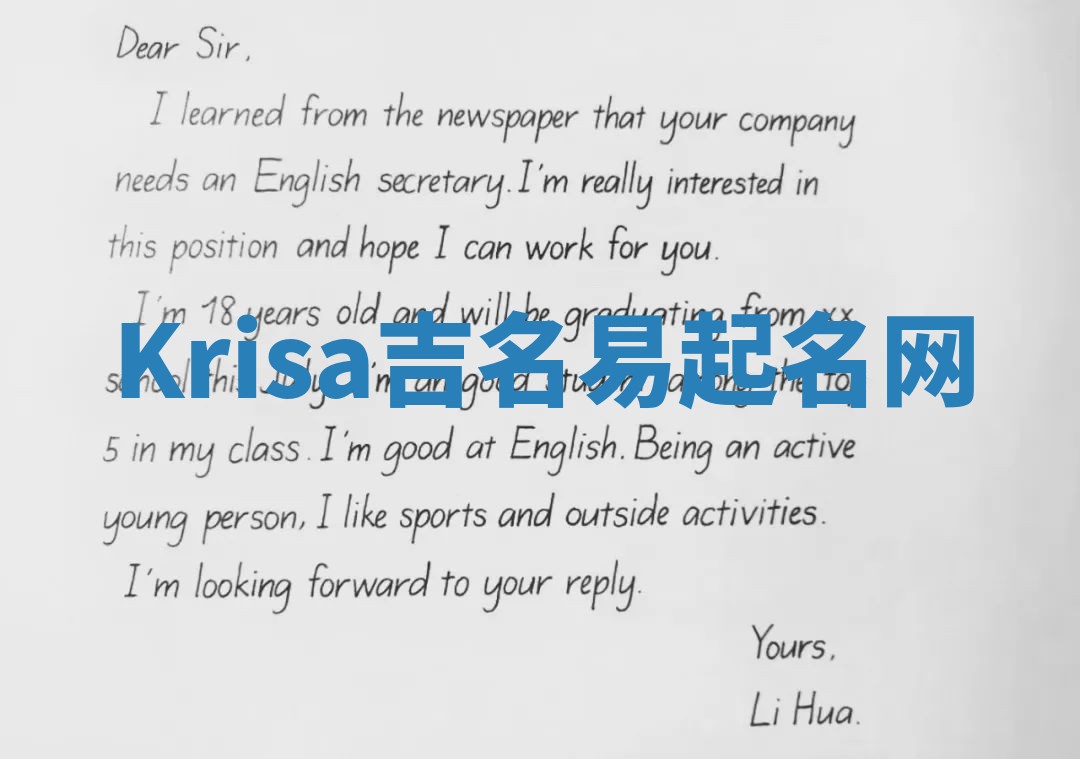 Dear Sir,
I learned from the newspaper that your company
needs an English secretary. I'm really interested in
this position and hope I can work for you.
I'm 18 years old and will be graduating from xx
Krisa吉名易起名网
school this July. I'm an good student among the top
5 in my class. I'm good at English. Being an active
young person, I like sports and outside activities.
I'm looking forward to your reply.
Yours,
Li Hua.